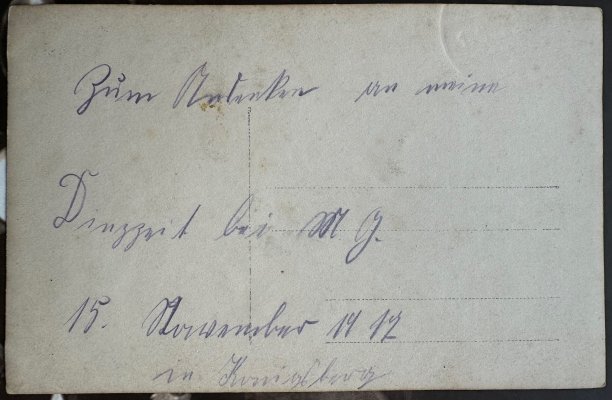 Zum Andenken an meine
Dinzzeit bei M G.
15. Nowember 1917
in Konigsberg